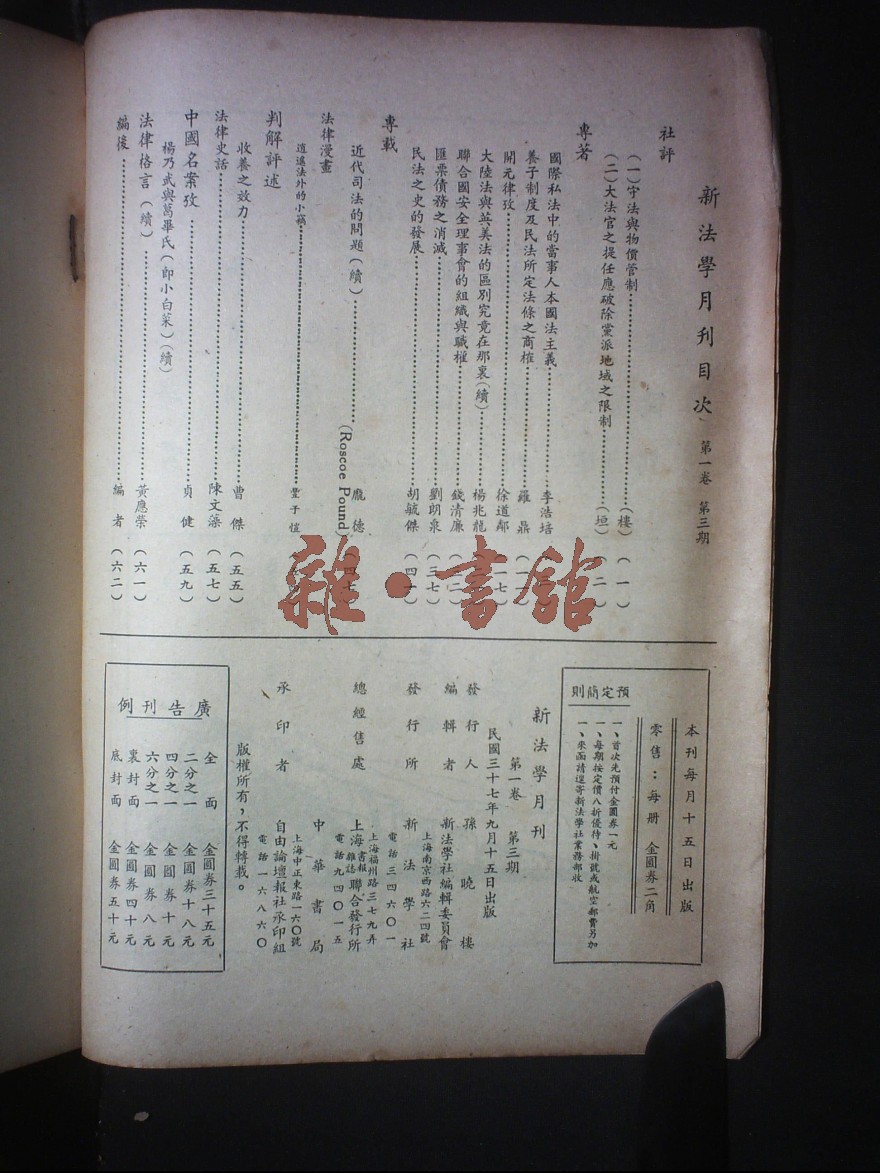 新法學月刊目次 第一卷 第三期
社評
(一)守法與物價管制……(樓)(一)
(二)大法官之提任應破除黨派地域之限制……(垣)(二)
專著
國際私法中的當事人本國法主義……李浩培
養子制度及民法所定法條之商榷……羅鼎
開元律攷……徐道鄰
大陸法與英美法的區別究竟在那裏(續)……楊兆龍
聯合國安全理事會的組織與職權……錢清廉
匯票債務之消滅……劉朗泉(三七)
民法之史的發展……胡毓傑(四一)
專載
近代司法的問題(續)……龐德
(Roscoe Pound)
法律漫畫
逍遙法外的小竊……豐子愷
判解評述
收養之效力……曹傑(五五)
法律史話……陳文藻(五七)
中國名案攷……貞健(五九)
楊乃武與葛畢氏(即小白菜)(續)
法律格言(續)……黃應榮(六一)
編後……編者(六二)
雜·書館
本刊每月十五日出版
零售:每册 金圓券二角
預定簡則
一、首次先預付金圓券一元
一、每期按定價八折優待、掛號或航空郵費另加
一、來函請逕寄新法學社業務部收
新法學月刊
第一卷 第三期
民國三十七年九月十五日出版
發行人 孫曉樓
編輯者 新法學社編輯委員會
上海南京西路六二四號
發行所 新法學社
電話三四六〇一
上海福州路三七九弄
總經售處 上海書報雜誌聯合發行所
電話九四〇一五
中華書局
上海中正東路一六〇號
承印者 自由論壇報社承印組
電話一六八六〇
版權所有,不得轉載。
廣告刊例
全面 金圓券三十五元
二分之一 金圓券十八元
四分之一 金圓券十元
六分之一 金圓券八元
裏封面 金圓券四十元
底封面 金圓券五十元